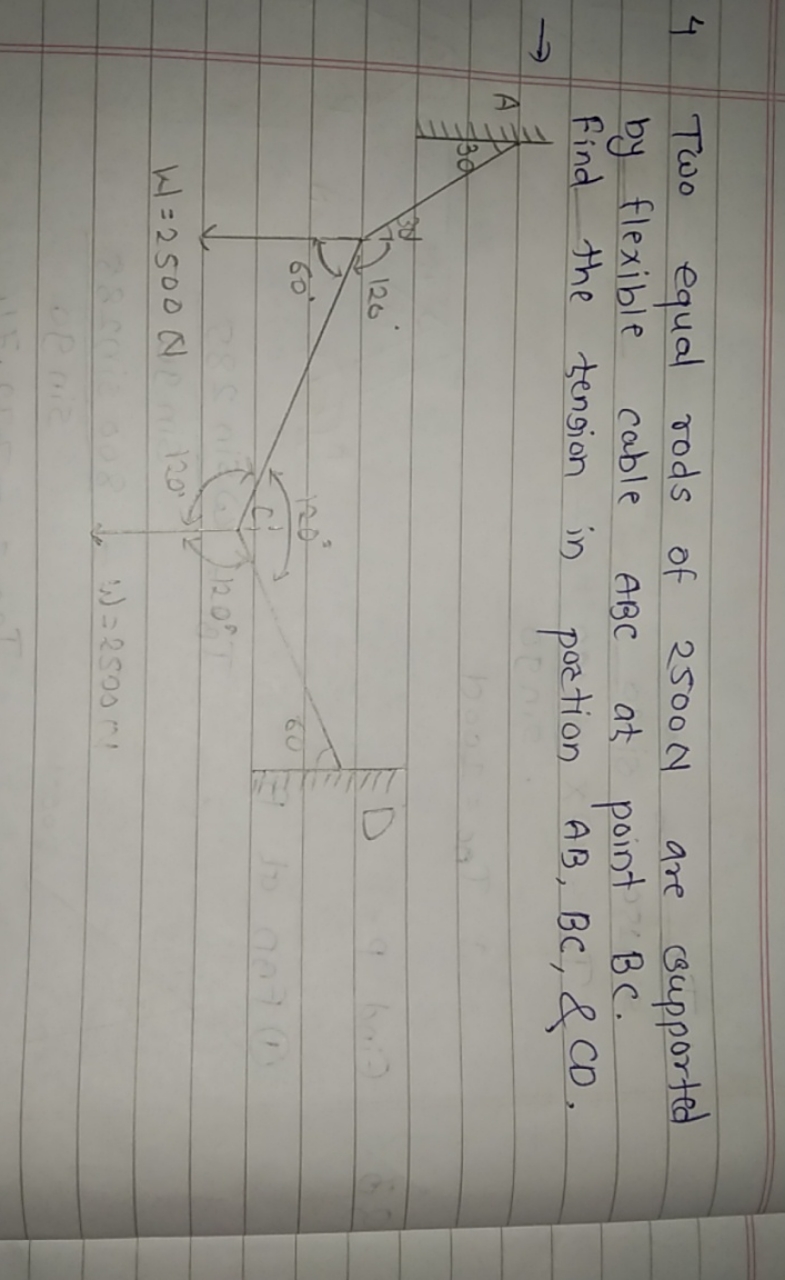 4 Two equal rods of 2500N are supported
by flexible cable ABC at point BC.
Find the tension in poртion AB, BC, & CD.
→
A
30
30
120°
60°
W = 2500 N
C
120°
120°
120°
W = 2500 N
60
D